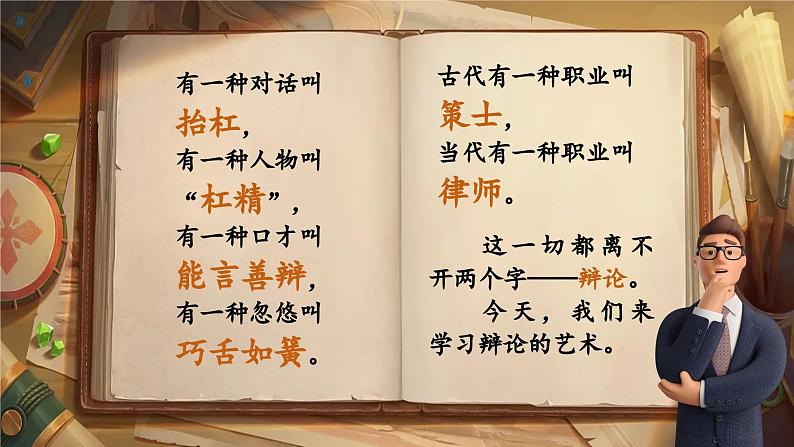 有一种对话叫
抬杠，
有一种人物叫
“杠精”，
有一种口才叫
能言善辩，
有一种忽悠叫
巧舌如簧。
古代有一种职业叫
策士，
当代有一种职业叫
律师。
这一切都离不
开两个字——辩论。
今天，我们来
学习辩论的艺术。